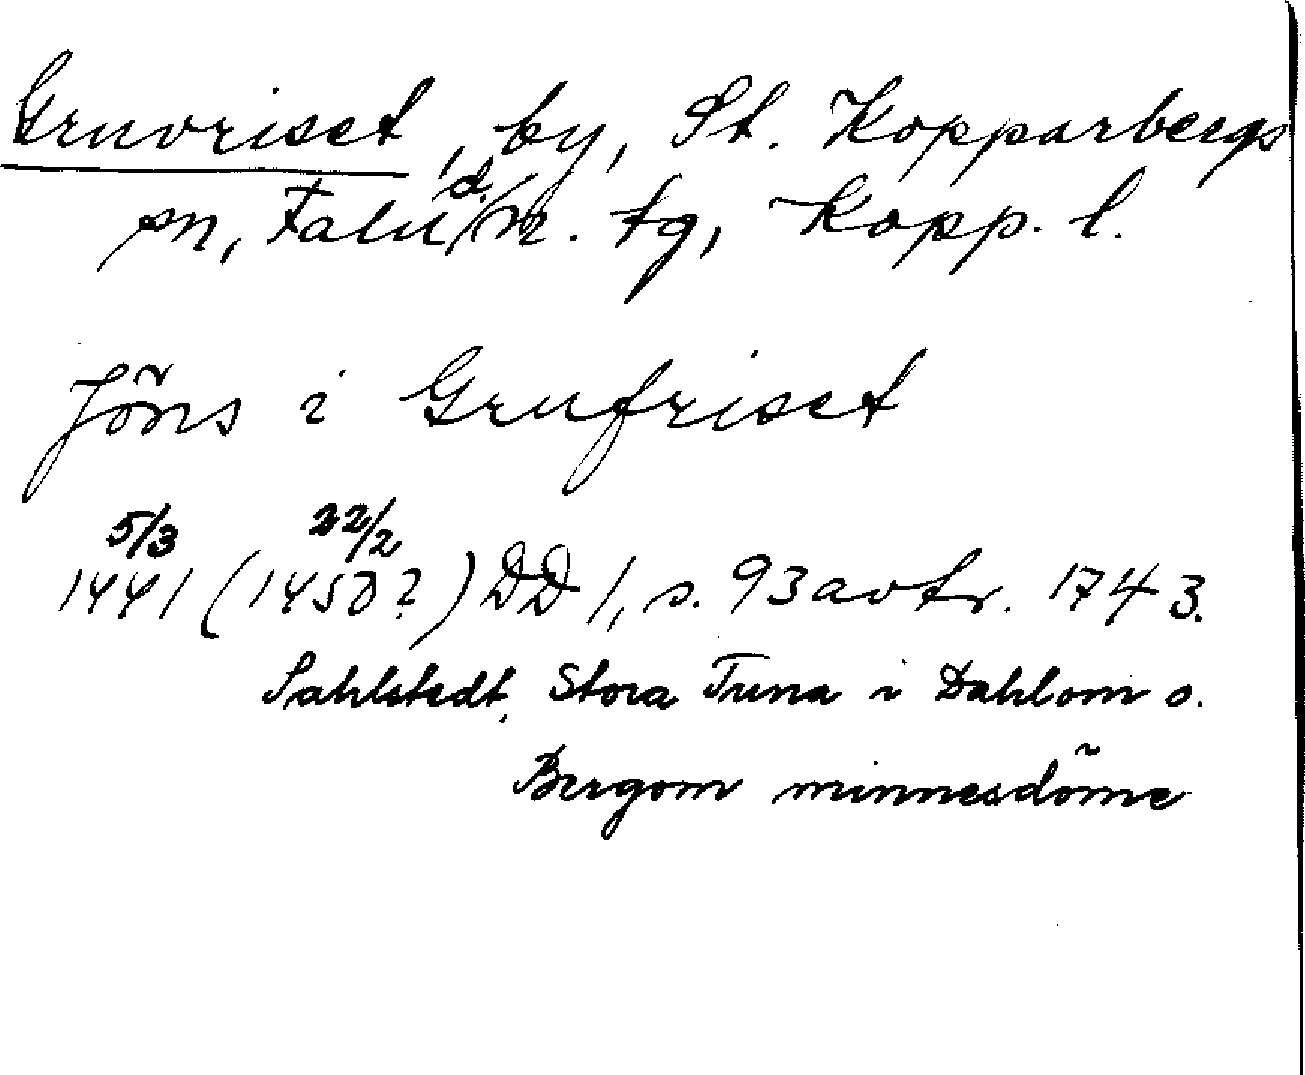 Gruvriset, by, St. Kopparbergs
sn, Falu d. n. tg, Kopp. l.
Jöns i Grufriset
5/3 22/2
1441 (1450?) DD 1, s. 93 avtr. 1743.
Sahlstedt, Stora Tuna i Dahlom o.
Bergom minnesdöme